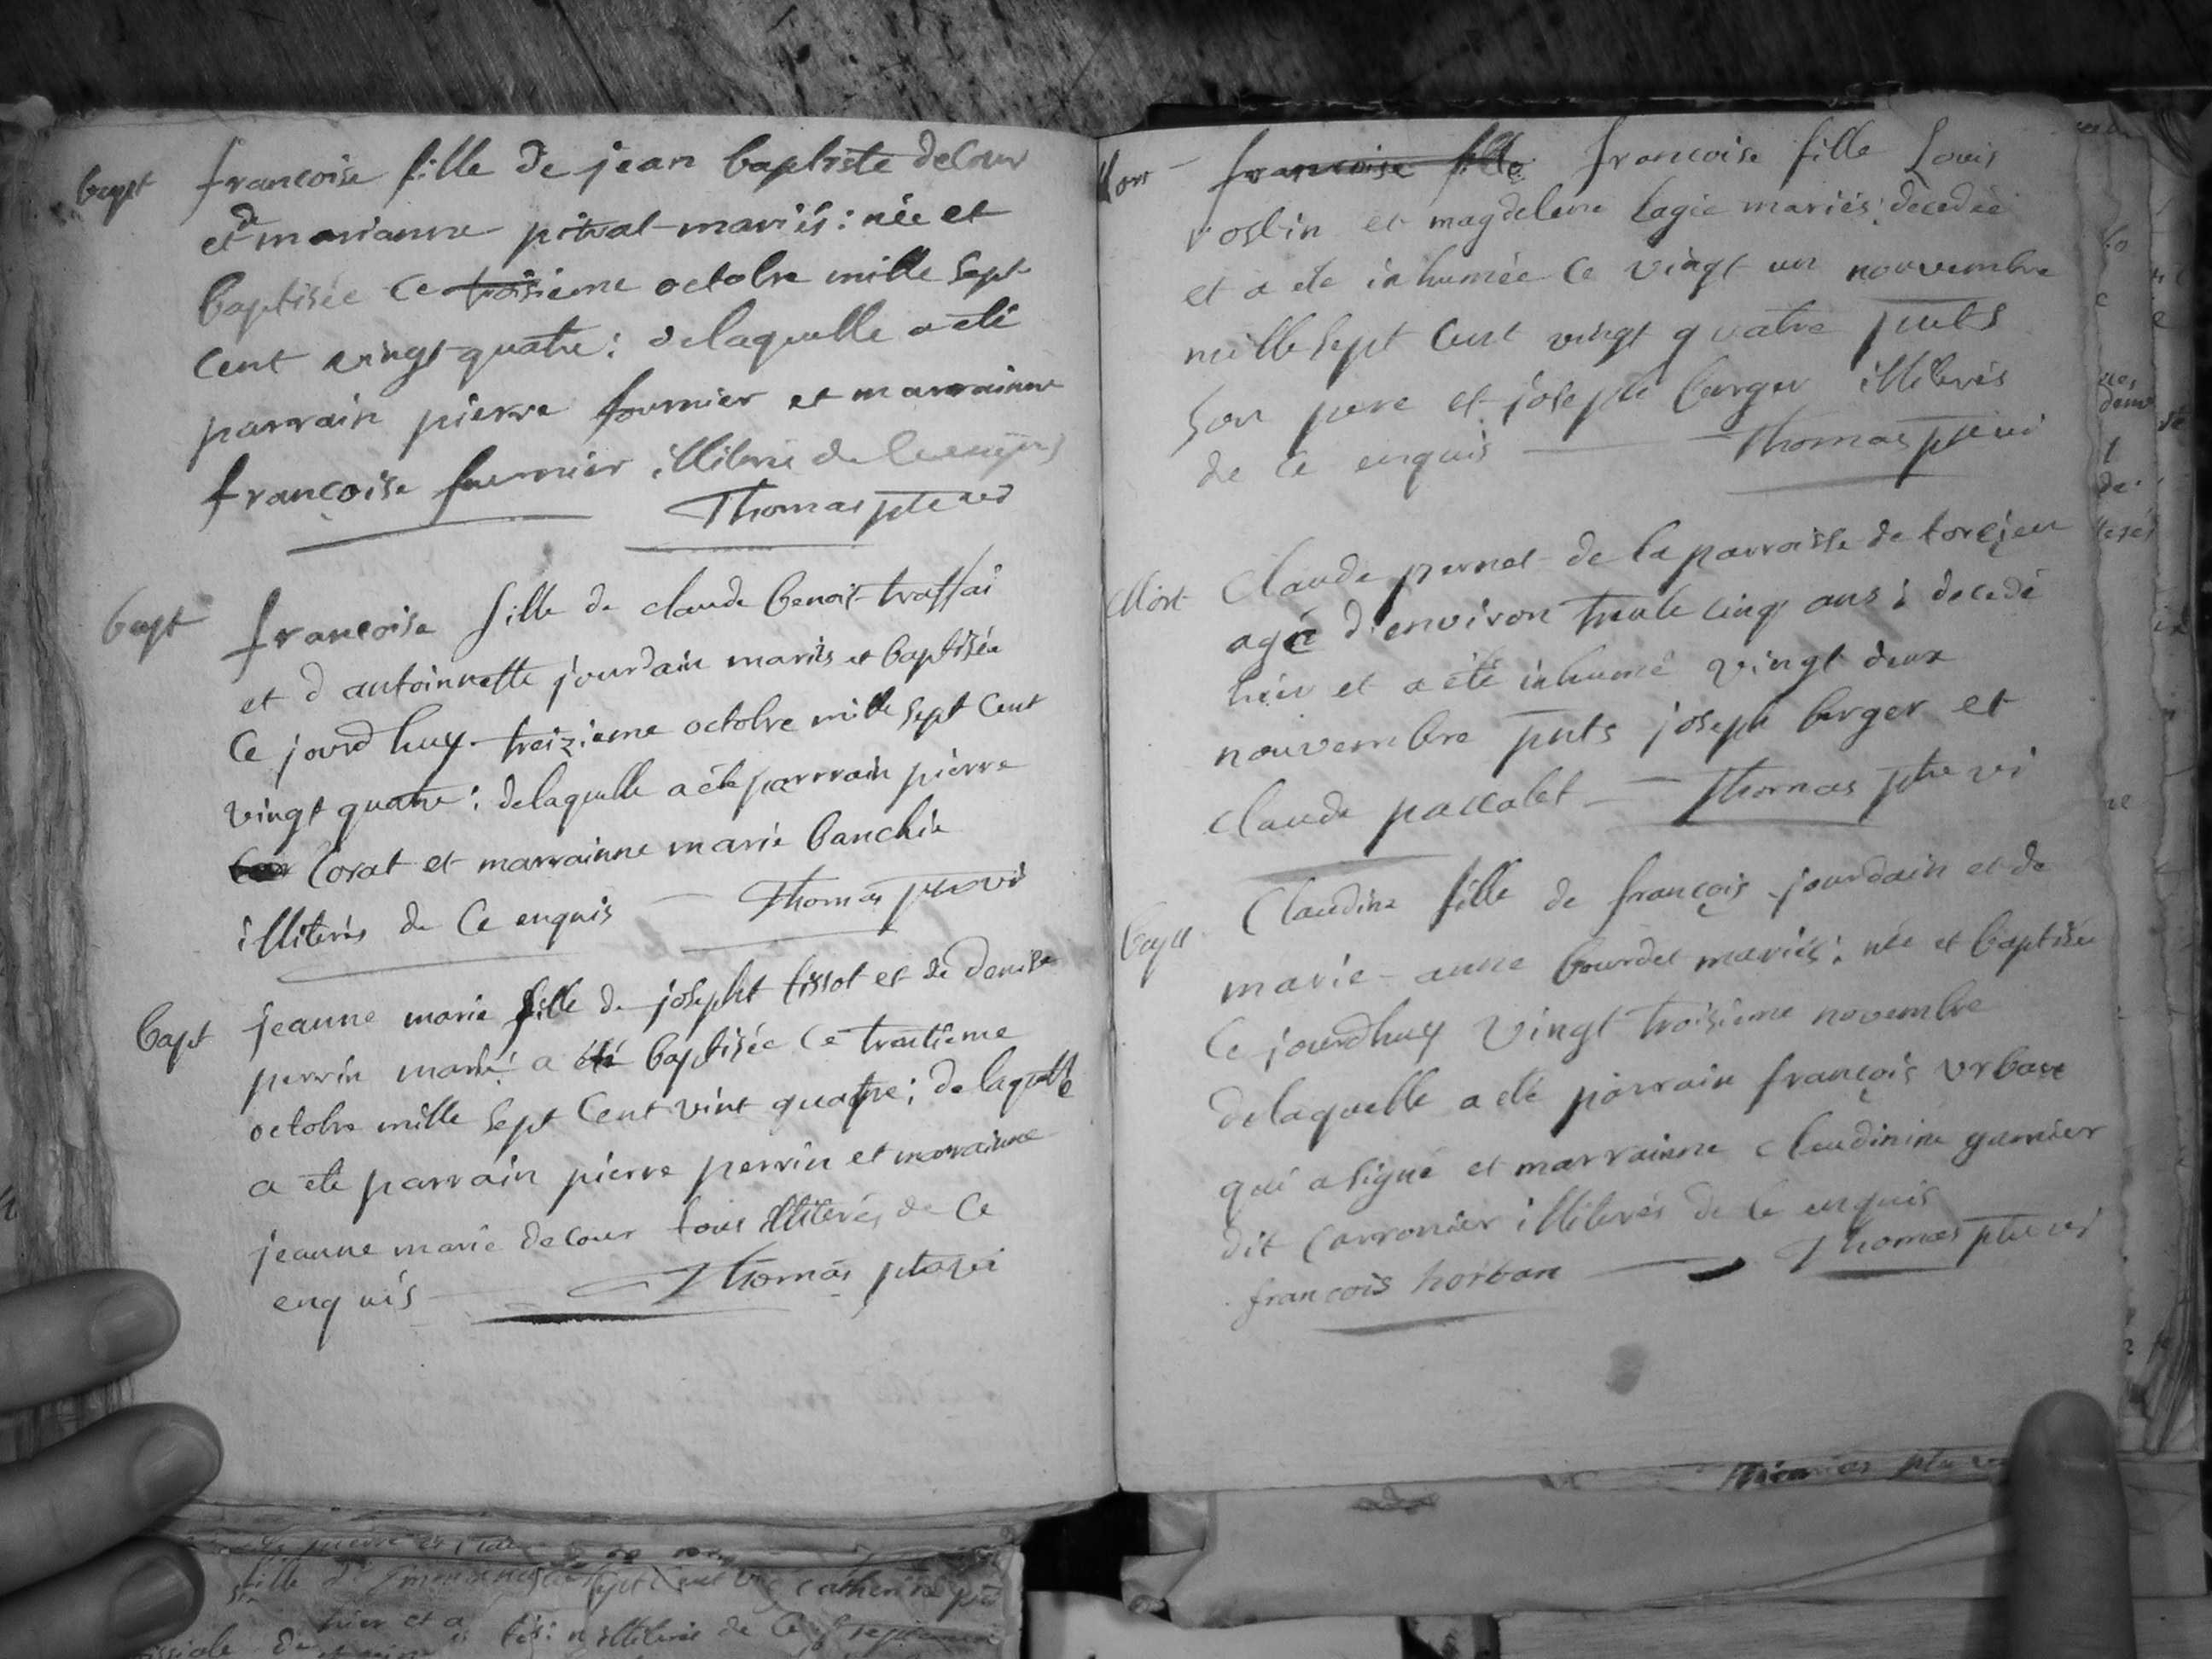 bapt francoise fille de jean baptiste delour
et de marianne pitval mariés: née et
baptisée ce troisieme octobre mille sept
cent vingt quatre: delaquelle a eté
parrain pierre fournier et marrainne
françoise fournier illiterés de ce enquis
Thomas ptre vi
bapt francoise fille de claude benoit traffai
et d antoinnette jourdain mariés et baptisée
ce jourdhuy treizieme octobre mille sept cent
vingt quatre: delaquelle a été parrain pierre
corat et marrainne marie banchin
illiterés de ce enquis Thomas ptre vi
bapt jeanne marie fille de josepht tissot et de denise
perrin marié a été baptisée ce trentieme
octobre mille sept cent vint quatre; de laquelle
a ete parrain pierre perrin et marrainne
jeanne marie decour tous illiterés de ce
enquis Thomas ptre vi
Mort francoise fille francoise fille Louis
roslin et magdelene lagie mariés: decedée
et a eté inhumée ce vingt un nouvembre
mille sept cent vingt quatre pnts
son pere et joseph berger illiterés
de ce enquis Thomas ptre vi
Mort Claude pernet de la parroisse de torcieu
agé d'environ trente cinq ans: decedé
hier et a été inhumé vingt deux
nouvembre pnts joseph berger et
claude paccalet Thomas ptre vi
bapt Claudine fille de françois jourdain et de
marie-anne bourdet mariés: née et baptisée
ce jourdhuy vingt troisieme novembre
delaquelle a eté parrain françois urban
qui a signé et marrainne claudinine garnier
dit carronier illiterés de ce enquis
francois horban Thomas ptre vi